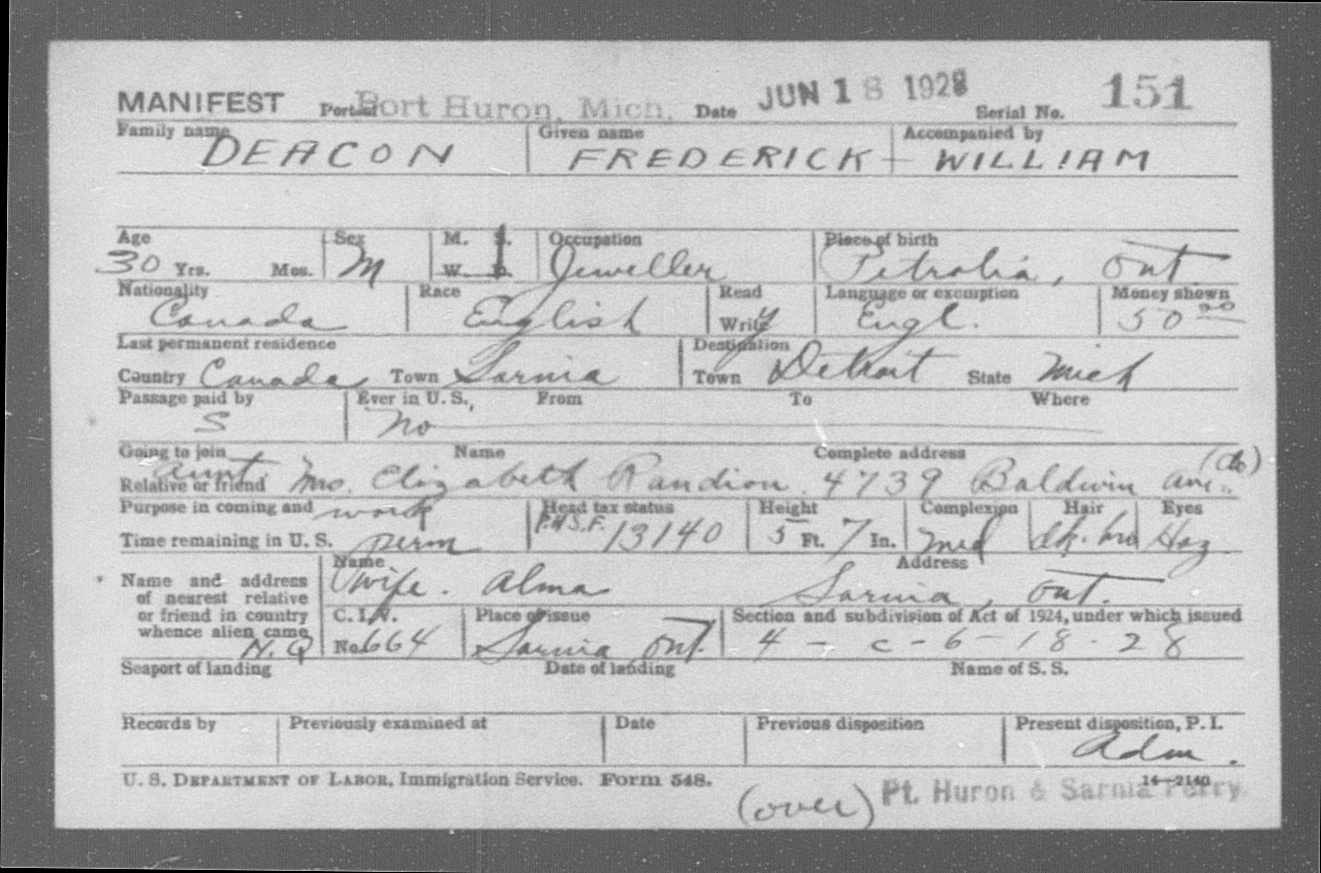 MANIFEST Port of Port Huron, Mich. Date JUN 18 1928 Serial No. 151
Family name DEACON Given name FREDERICK Accompanied by WILLIAM
Age 30 Yrs. Mos. Sex M M. S. W. D. Occupation Jeweller Place of birth Petrolia, Ont
Nationality Canada Race English Read Write y Language or exemption Engl. Money shown 50 00
Last permanent residence Destination
Country Canada Town Sarnia Town Detroit State Mich
Passage paid by S Ever in U. S., No From To Where
Going to join Name Complete address
Relative or friend aunt Mrs. Elizabeth 4739 Baldwin ave.
Purpose in coming and work Head tax status P.H.S.F. 13140 Height 5 Ft. 7 In. Complexion med Hair dk. bro Eyes Haz
Time remaining in U. S. perm
Name and address of nearest relative or friend in country whence alien came Name wife. Alma Address Sarnia, Ont.
N.Q C. I. V. No. 664 Place of issue Sarnia Ont. Section and subdivision of Act of 1924, under which issued 4 - c - 6 - 18 - 28
Seaport of landing Date of landing Name of S. S.
Records by Previously examined at Date Previous disposition Present disposition, P. I. Adm.
U. S. DEPARTMENT OF LABOR, Immigration Service. Form 548. 14—2140
(over) Pt. Huron & Sarnia Ferry